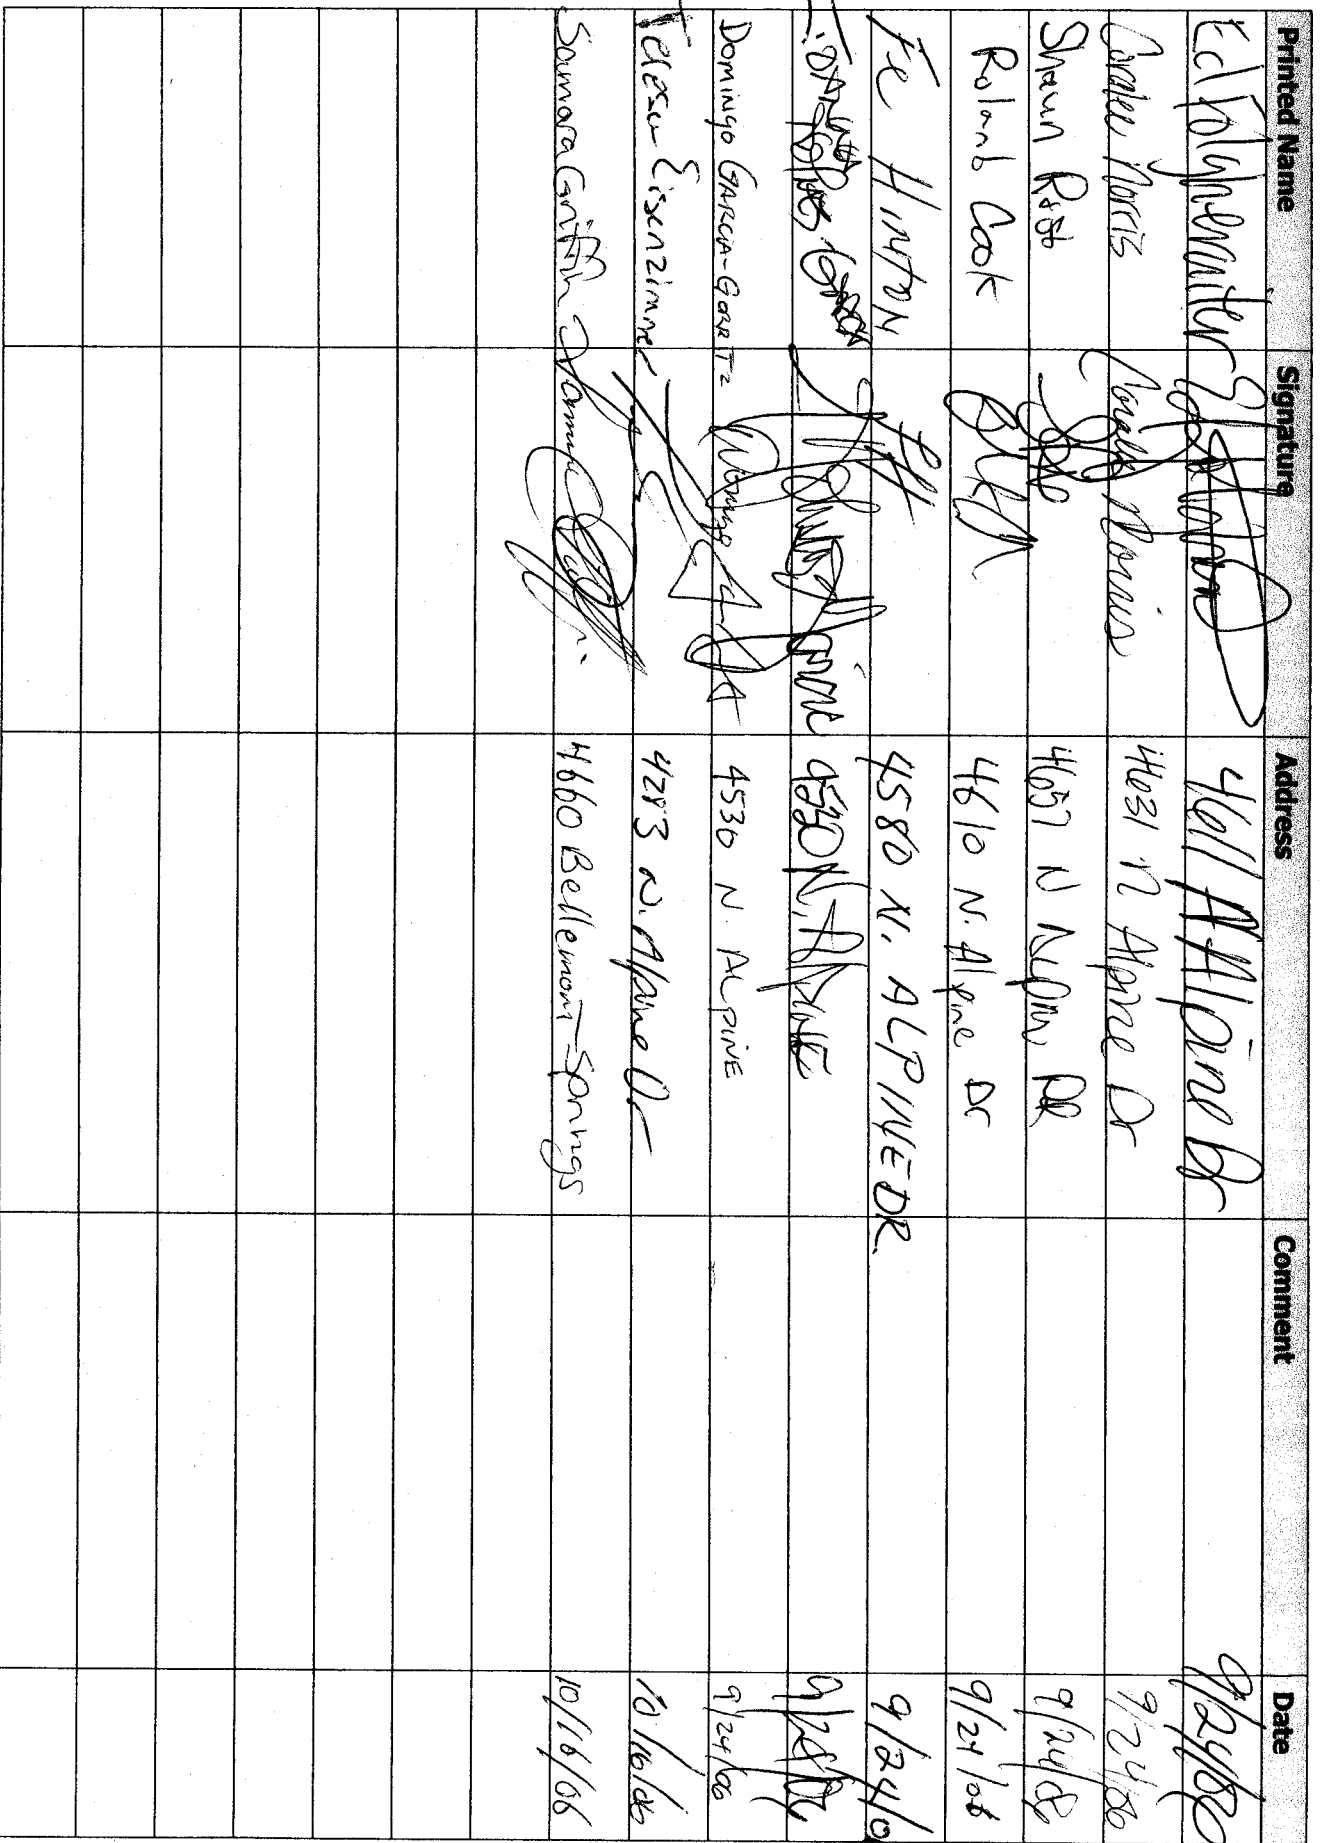 Printed Name Signature Address Comment Date
Ed 4611 N Alpine Dr 9/24/06
Coralee Norris Coralee Norris 4631 N Alpine Dr 9/24/06
Shaun Rist 4657 N Alpine DR 9/24/06
Roland Cook 4610 N. Alpine Dr 9/24/06
Fe HINTON 4580 N. ALPINE DR. 9/24/0
4530 N. ALPINE
DOMINGO GARCIA-GORRITZ 4530 N. ALPINE 9/24/06
Teresa Eisenzimmer 4283 N. Alpine Dr 10/16/06
Samara Griffith 4660 Bellemont Springs 10/16/06